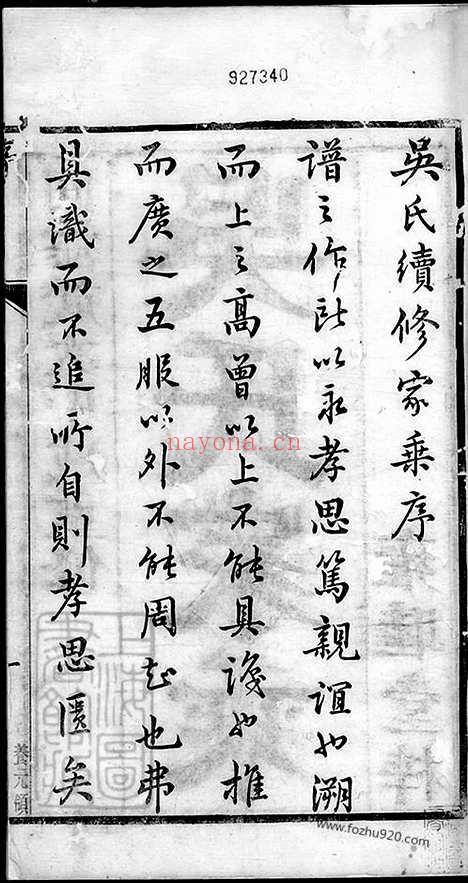 927340
吳氏續修家乘序
譜之作所以永孝思篤親誼也溯
而上之高曾以上不能具識也推
而廣之五服以外不能周知也弗
具識而不追所自則孝思匱矣
一
養元領
nayona.cn
www.fozhu920.com